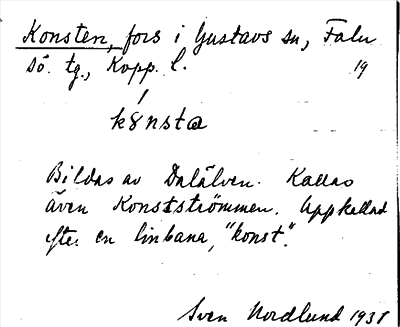 Konsten, fors i Gustavs sn, Falu
sö. tg., Kopp. l. 19
kȣ́nsta
Bildas av Dalälven. Kallas
även Konstströmmen. Uppkallad
efter en linbana, "konst".
Sven Nordlund 1938